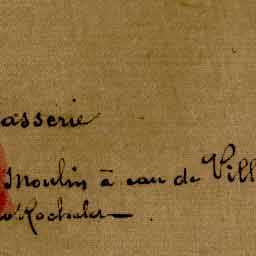 asserie
Moulin à eau de Vill
Rochelet